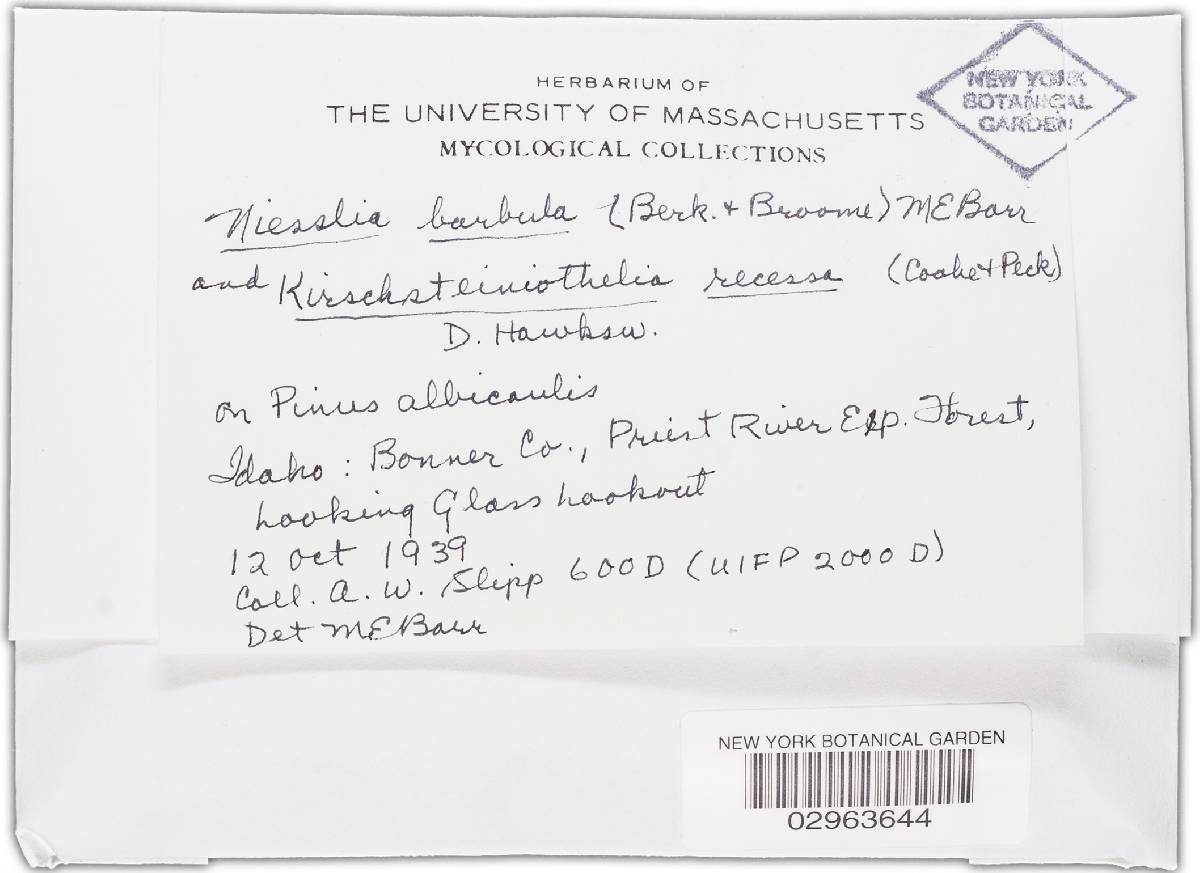 HERBARIUM OF
THE UNIVERSITY OF MASSACHUSETTS
MYCOLOGICAL COLLECTIONS
NEW YORK
BOTANICAL
GARDEN
Niesslia barbula (Berk. & Broome) MEBarr
and Kirschsteiniothelia recessa (Cooke & Peck)
D. Hawksw.
on Pinus albicaulis
Idaho: Bonner Co., Priest River Exp. Forest,
Looking Glass Lookout
12 Oct 1939
Coll. A. W. Slipp 600D (UIFP 2000 D)
Det MEBarr
NEW YORK BOTANICAL GARDEN
02963644